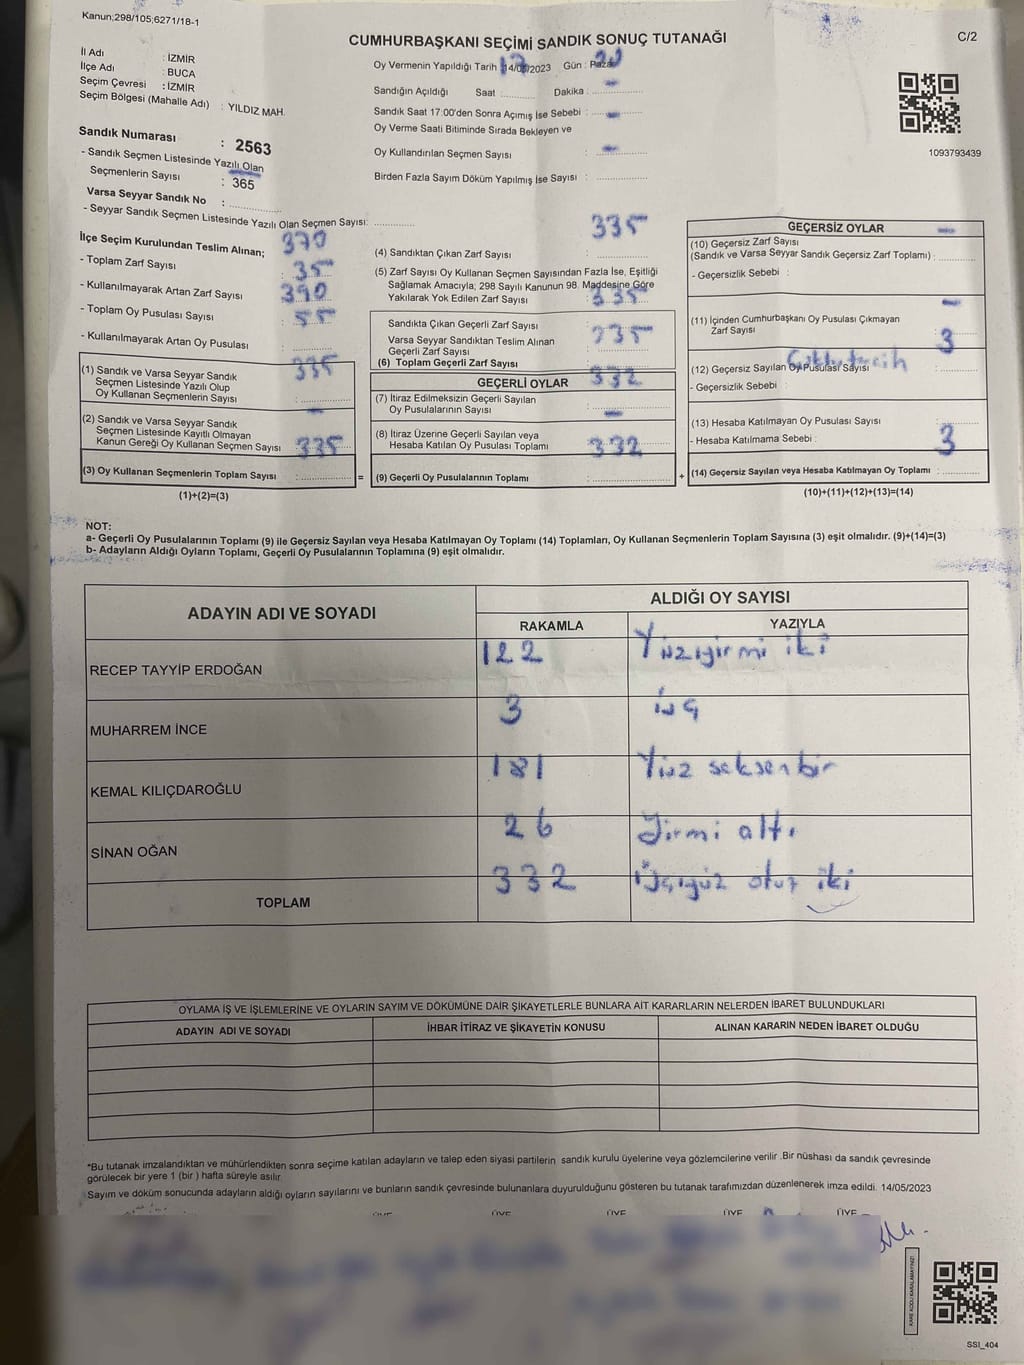 Kanun;298/105;6271/18-1
CUMHURBAŞKANI SEÇİMİ SANDIK SONUÇ TUTANAĞI
C/2
İl Adı : İZMİR
İlçe Adı : BUCA
Seçim Çevresi : İZMİR
Seçim Bölgesi (Mahalle Adı) : YILDIZ MAH.
Sandık Numarası : 2563
- Sandık Seçmen Listesinde Yazılı Olan
Seçmenlerin Sayısı : 365
Varsa Seyyar Sandık No :
- Seyyar Sandık Seçmen Listesinde Yazılı Olan Seçmen Sayısı:
Oy Vermenin Yapıldığı Tarih : 14/05/2023 Gün : Pazar
Sandığın Açıldığı Saat Dakika :
Sandık Saat 17:00'den Sonra Açımış İse Sebebi : -
Oy Verme Saati Bitiminde Sırada Bekleyen ve
Oy Kullandırılan Seçmen Sayısı : -
Birden Fazla Sayım Döküm Yapılmış İse Sayısı :
1093793439
İlçe Seçim Kurulundan Teslim Alınan; 370
- Toplam Zarf Sayısı : 35
- Kullanılmayarak Artan Zarf Sayısı : 390
- Toplam Oy Pusulası Sayısı : 55
- Kullanılmayarak Artan Oy Pusulası :
(1) Sandık ve Varsa Seyyar Sandık 335
Seçmen Listesinde Yazılı Olup
Oy Kullanan Seçmenlerin Sayısı :
(2) Sandık ve Varsa Seyyar Sandık -
Seçmen Listesinde Kayıtlı Olmayan
Kanun Gereği Oy Kullanan Seçmen Sayısı : 335
(3) Oy Kullanan Seçmenlerin Toplam Sayısı :
=
(1)+(2)=(3)
335
(4) Sandıktan Çıkan Zarf Sayısı :
(5) Zarf Sayısı Oy Kullanan Seçmen Sayısından Fazla İse, Eşitliği
Sağlamak Amacıyla; 298 Sayılı Kanunun 98. Maddesine Göre
Yakılarak Yok Edilen Zarf Sayısı : 335
Sandıkta Çıkan Geçerli Zarf Sayısı :
Varsa Seyyar Sandıktan Teslim Alınan 335
Geçerli Zarf Sayısı :
(6) Toplam Geçerli Zarf Sayısı :
GEÇERLİ OYLAR 332
(7) İtiraz Edilmeksizin Geçerli Sayılan
Oy Pusulalarının Sayısı : -
(8) İtiraz Üzerine Geçerli Sayılan veya
Hesaba Katılan Oy Pusulası Toplamı : 332
(9) Geçerli Oy Pusulalarının Toplamı :
+
GEÇERSİZ OYLAR -
(10) Geçersiz Zarf Sayısı
(Sandık ve Varsa Seyyar Sandık Geçersiz Zarf Toplamı) :
- Geçersizlik Sebebi :
-
(11) İçinden Cumhurbaşkanı Oy Pusulası Çıkmayan
Zarf Sayısı : 3
(12) Geçersiz Sayılan Oy Pusulası Sayısı :
- Geçersizlik Sebebi :
(13) Hesaba Katılmayan Oy Pusulası Sayısı :
- Hesaba Katılmama Sebebi : 3
(14) Geçersiz Sayılan veya Hesaba Katılmayan Oy Toplamı :
(10)+(11)+(12)+(13)=(14)
NOT:
a- Geçerli Oy Pusulalarının Toplamı (9) ile Geçersiz Sayılan veya Hesaba Katılmayan Oy Toplamı (14) Toplamları, Oy Kullanan Seçmenlerin Toplam Sayısına (3) eşit olmalıdır. (9)+(14)=(3)
b- Adayların Aldığı Oyların Toplamı, Geçerli Oy Pusulalarının Toplamına (9) eşit olmalıdır.
ADAYIN ADI VE SOYADI ALDIĞI OY SAYISI
RAKAMLA YAZIYLA
RECEP TAYYİP ERDOĞAN 122 Yüzyirmi iki
MUHARREM İNCE 3 üç
KEMAL KILIÇDAROĞLU 181 Yüz seksen bir
SİNAN OĞAN 26 Yirmi altı
TOPLAM 332 Üçyüz otuz iki
OYLAMA İŞ VE İŞLEMLERİNE VE OYLARIN SAYIM VE DÖKÜMÜNE DAİR ŞİKAYETLERLE BUNLARA AİT KARARLARIN NELERDEN İBARET BULUNDUKLARI
ADAYIN ADI VE SOYADI İHBAR İTİRAZ VE ŞİKAYETİN KONUSU ALINAN KARARIN NEDEN İBARET OLDUĞU
*Bu tutanak imzalandıktan ve mühürlendikten sonra seçime katılan adayların ve talep eden siyasi partilerin sandık kurulu üyelerine veya gözlemcilerine verilir .Bir nüshası da sandık çevresinde
görülecek bir yere 1 (bir ) hafta süreyle asılır.
Sayım ve döküm sonucunda adayların aldığı oyların sayılarını ve bunların sandık çevresinde bulunanlara duyurulduğunu gösteren bu tutanak tarafımızdan düzenlenerek imza edildi. 14/05/2023
ÜYE ÜYE ÜYE ÜYE ÜYE
KARE KODU KARALAMAYINIZ!
SSI_404